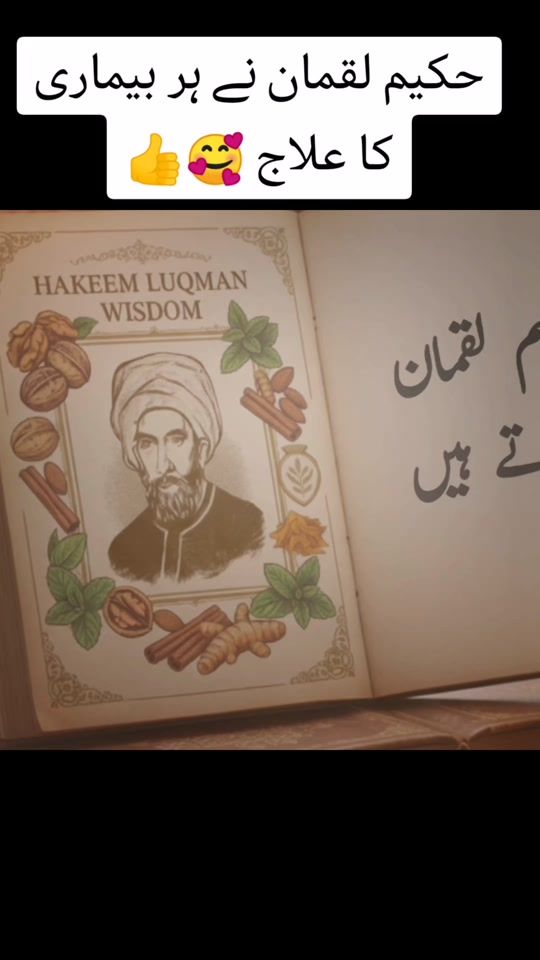 حکیم لقمان نے ہر بیماری
کا علاج 🥰👍
HAKEEM LUQMAN
WISDOM
لقمان
ہیں